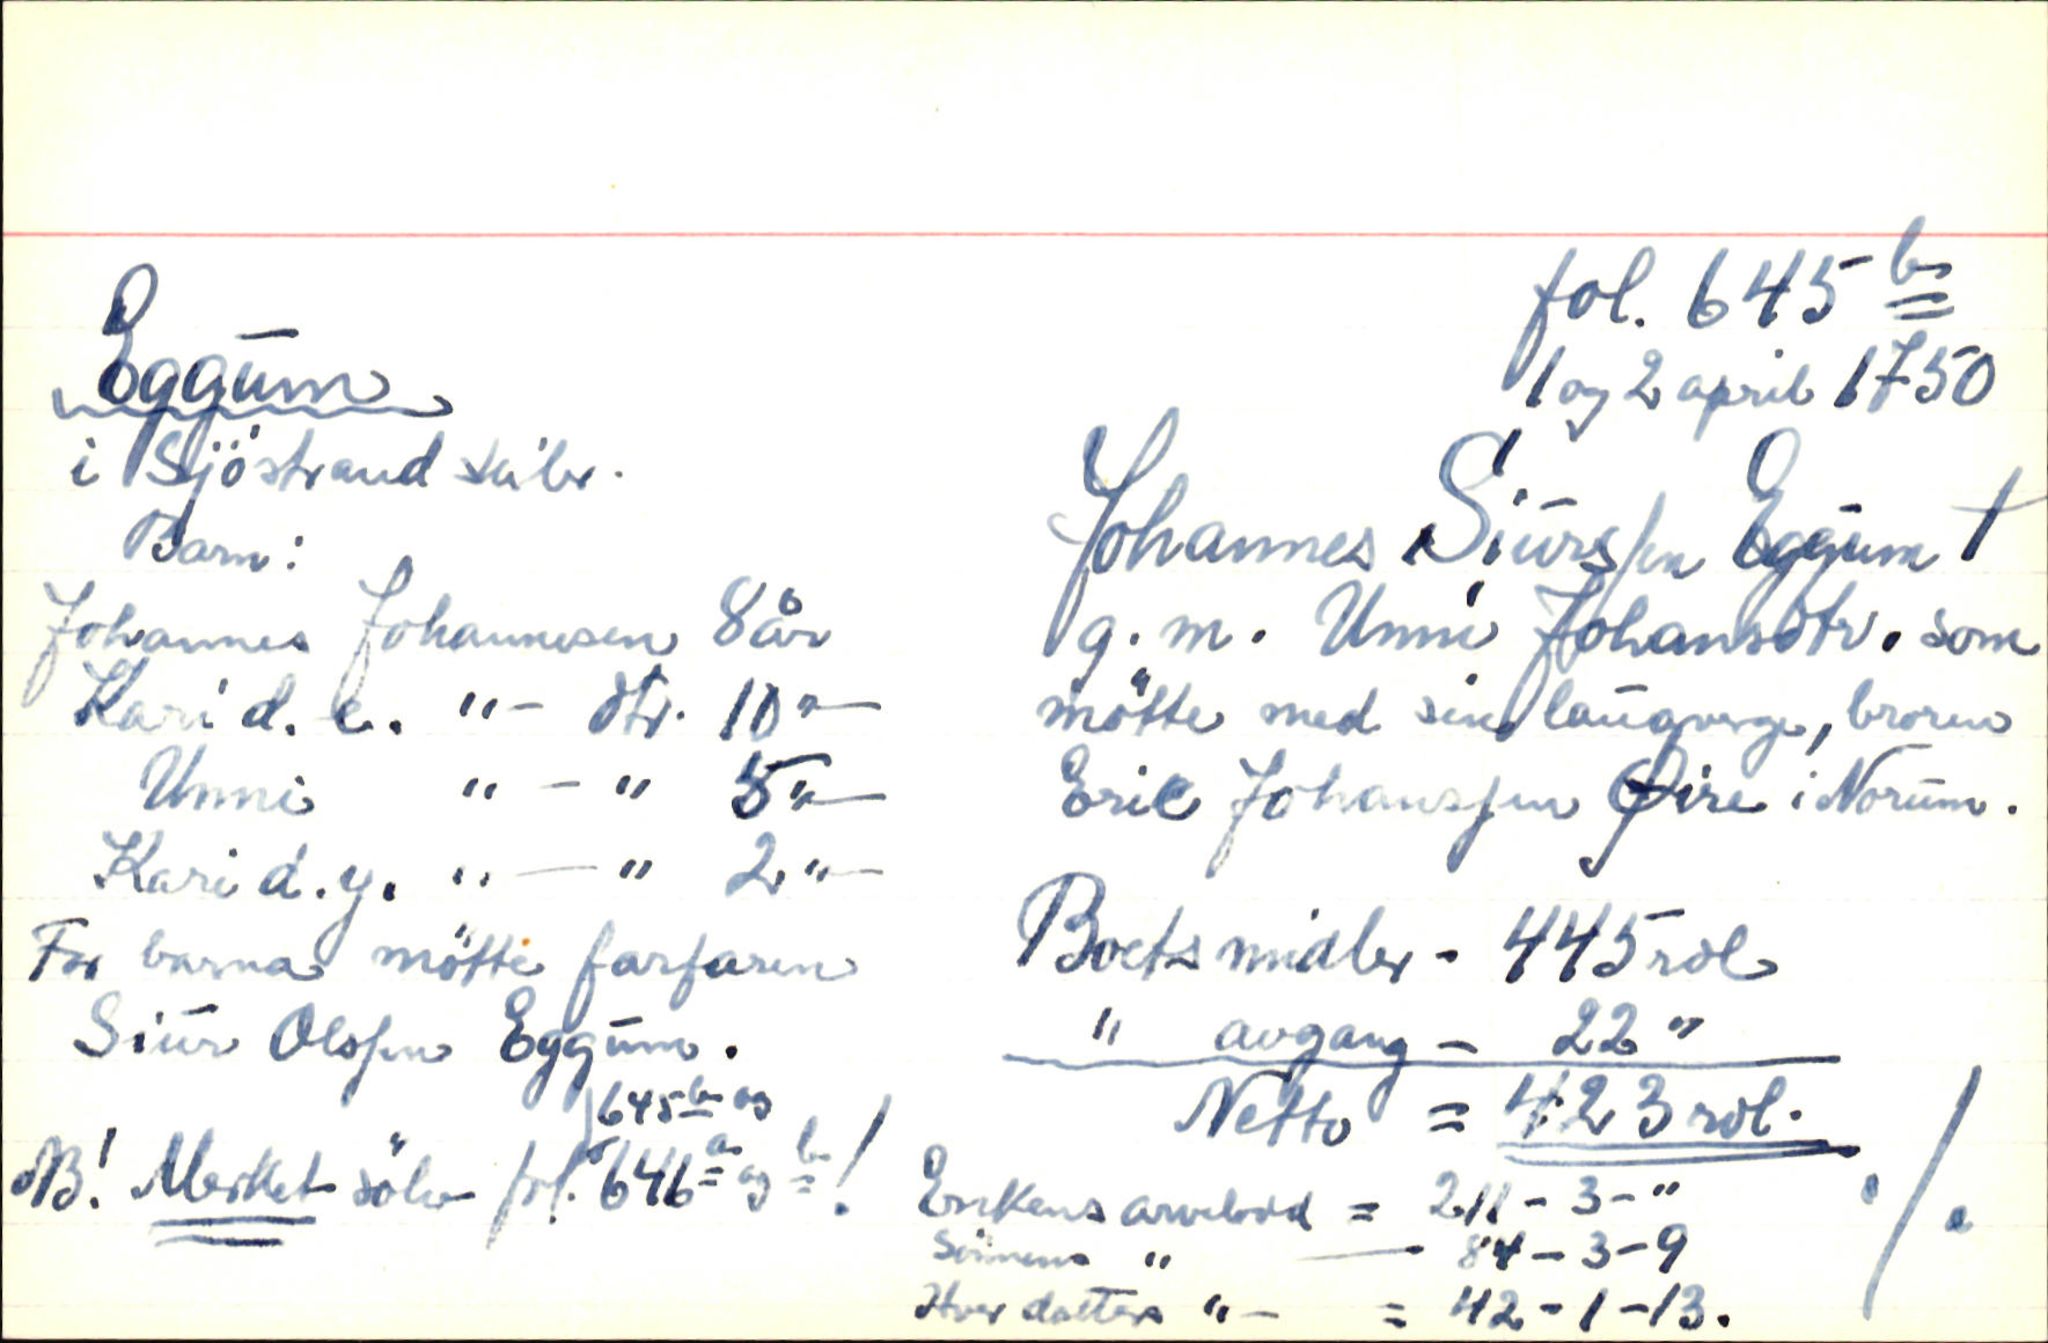 fol. 645 b
1 og 2 april 1750
Eggum
i Sjöstrand skibr.
Barn:
Johannes Johannesen 8 år
Kari d. e. "- dtr. 10 "-
Unni " - " 5 "-
Kari d. y. " - " 2 "-
For barna mötte farfaren
Siur Olsen Eggum.
645 b og
NB! Merket sölv fol. 646 a og b!
Johannes Siursen Eggum †
g. m. Unni Johansdtr. som
mötte med sin laugverge, broren
Eric Johansen Øire i Norum.
Boets midler - 445 rdl
" avgang - 22 "
Netto = 423 rdl.
Enkens arvelodd = 211 - 3 - "
Sönnens " - 84 - 3 - 9
Hver datters " - = 42 - 1 - 13.
./.